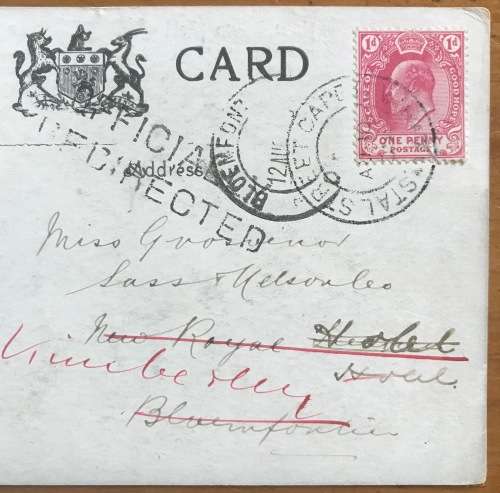 CARD
1d 1d
CAPE OF GOOD HOPE
ONE PENNY
POSTAGE
OFFICIALLY
REDIRECTED
BLOEMFON
12 AU
STREET CAPE
STAL ST
Address
Miss Grosvenor
Sass & Nelson Co
New Royal Hotel
Hotel
Kimberley
Bloemfontein